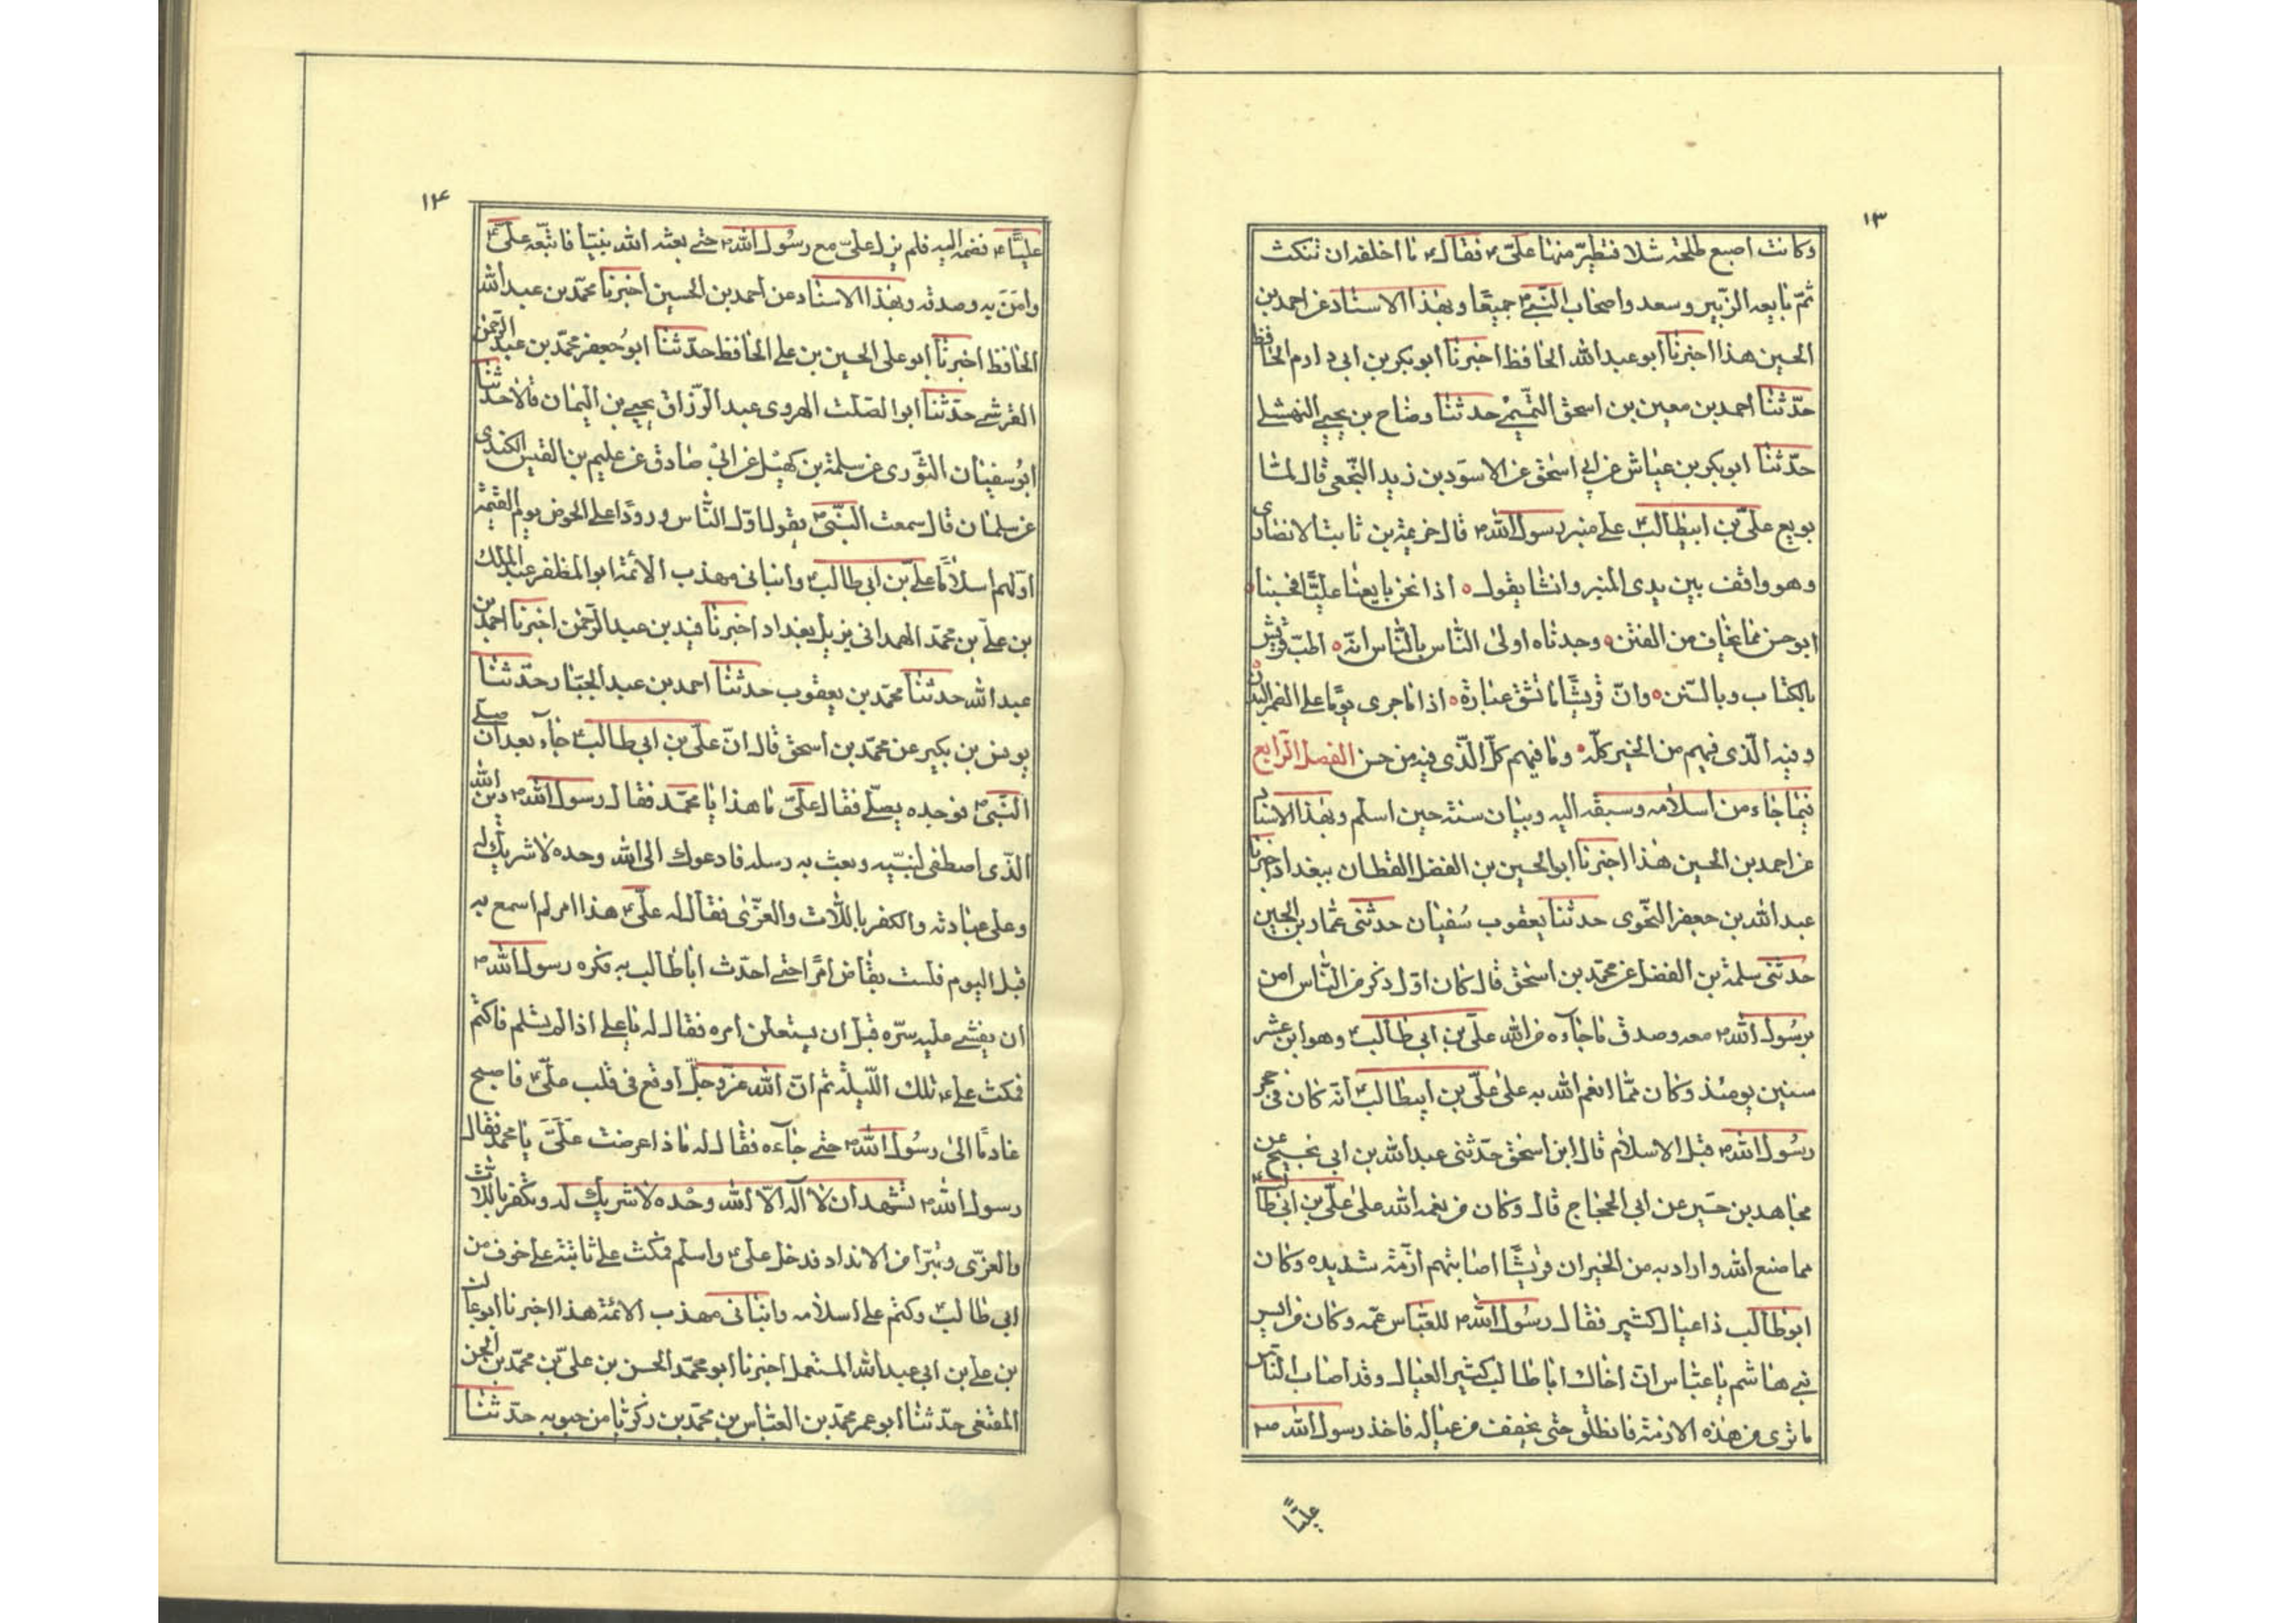 ١٣
وكانت اصبع طلحة شلا فتطيّر منها علىّ۴ فقال۴ ما اخلقه ان تنكث
ثمّ بايعه الزّبير وسعد واصحاب النّبىّ۳ جميعًا وبهذا الاسناد عن احمد بن
الحسين هذا اخبرنا ابو عبد الله الحافظ اخبرنا ابو بكر بن ابى دارم الحافظ
حدّثنا احمد بن معين بن اسحق التّميمى حدثنا وضاح بن يحيى النهشلى
حدّثنا ابو بكر بن عياش عن ابى اسحق عن الاسود بن زيد النّخعى قال لمّا
بويع علىّ بن ابيطالب۴ على منبر رسول الله۳ قال خزيمة بن ثابت الانصارى
وهو واقف بين يدى المنبر وانشا يقول ه اذا نحن بايعنا عليًّا فحسبنا ه
ابو حسن مما نخاف من الفتن ه وجدناه اولى النّاس بالنّاس انّه ه اطبّ قريش
بالكتاب وبالسّنن ه وانّ قريشًا ما تشق غباره ه اذا ما جرى يومًا على الضمر البدن
وفيه الّذى فيهم من الخير كلّه ه وما فيهم كلّ الّذى فيه من حسن الفصل الرّابع
فيما جاء من اسلامه وسبقه اليه وبيان سنته حين اسلم وبهذا الاسناد
عن احمد بن الحسين هذا اخبرنا ابو الحسين بن الفضل القطان ببغداد اخبرنا
عبد الله بن جعفر النّحوى حدثنا يعقوب سُفيان حدثنى عمّار بن الحسين
حدثنى سلمة بن الفضل عن محمّد بن اسحق قال كان اوّل ذكر من النّاس امن
برسُول الله۳ معه وصدق ما جاءه من الله علىّ بن ابى طالب۴ وهو ابن عشر
سنين يومئذ وكان ممّا انعم الله به على علىّ بن ابيطالب۴ انّه كان فى حجر
رسُول الله۳ قبل الاسلام قال ابن اسحق حدّثنى عبد الله بن ابى نجيح عن
مجاهد بن جبير عن ابى الحجاج قال وكان من نعمة الله على علىّ بن ابى طالب۴
مما صنع الله واراد به من الخير ان قريشًا اصابتهم ازمة شديده وكان
ابو طالب ذا عيال كثير فقال رسُول الله۳ للعبّاس عمّه وكان من ايسر
بنى هاشم يا عبّاس انّ اخاك ابا طالب كثير العيال وقد اصاب النّاس
ما ترى من هذه الازمة فانطلق حتى نخفف من عياله فاخذ رسول الله ص
عليًّا
١۴
عليًّا۴ فضمه اليه فلم يزل علىّ مع رسُول الله۳ حتى بعثه الله نبيّا فاتّبعه علىّ۴
وامَنَ به وصدقه وبهذا الاسناد عن احمد بن الحسين اخبرنا محمّد بن عبد الله
الحافظ اخبرنا ابو على الحسين بن على الحافظ حدّثنا ابو جعفر محمّد بن عبد الرّحمن
القرشى حدّثنا ابو الصّلت الهروى عبد الرّزاق يحيى بن اليمان قالا حدّثنا
ابو سفيان الثّورى عن سلمة بن كهيل عن ابى صادق عن عليم بن القيس الكندى
عن سلمان قال سمعت النّبىّ۳ يقول اوّل النّاس ورودًا على الحوض يوم القيمة
اوّلهم اسلامًا علىّ بن ابى طالب۴ وانبانى مهذب الائمة ابو المظفر عبد الملك
بن علىّ بن محمّد الهمدانى نزيل بغداد اخبرنا فيد بن عبد الرّحمن اخبرنا احمد بن
عبد الله حدثنا محمّد بن يعقوب حدثنا احمد بن عبد الجبّار حدّثنا
يونس بن بكير عن محمّد بن اسحق قال انّ علىّ بن ابى طالب۴ جآء بعد ان صلّى
النّبىّ۳ فوجده يصلّى فقال علىّ ما هذا يا محمّد فقال رسول الله۳ دين الله
الّذى اصطفى لنبيّه وبعث به رسله فادعوك الى الله وحده لا شريك له
وعلى عبادته والكفر باللات والعزّى فقال له علىّ۴ هذا امر لم اسمع به
قبل اليوم فلست بقاض امرًا حتى احدّث ابا طالب به فكره رسول الله۳
ان يفشى عليه سرّه قبل ان يستعلن امره فقال له يا على اذا لم تسلم فاكتم
فمكث على۴ تلك اللّيلة ثم انّ الله عزّ وجلّ اوقع فى قلب علىّ۴ فاصبح
غاديًا الى رسُول الله۳ حتى جاءه فقال له ماذا عرضت علَىَّ يا محمد فقال
رسول الله۳ تشهد ان لا اله الّا الله وحْده لا شريك له وتكفر باللات
والعزّى وتبرّا من الانداد فدخل على۴ واسلم فمكث على ثابته على خوف من
ابى طالب۴ وكتم على اسلامه وانبانى مهذب الائمة هذا اخبرنا ابو غالب
بن على بن ابى عبد الله المستعمل اخبرنا ابو محمّد الحسن بن علىّ بن محمّد بن الحسن
المقنعى حدّثنا ابو عمر محمّد بن العبّاس بن محمّد بن زكريّا من حيويه حدّثنا